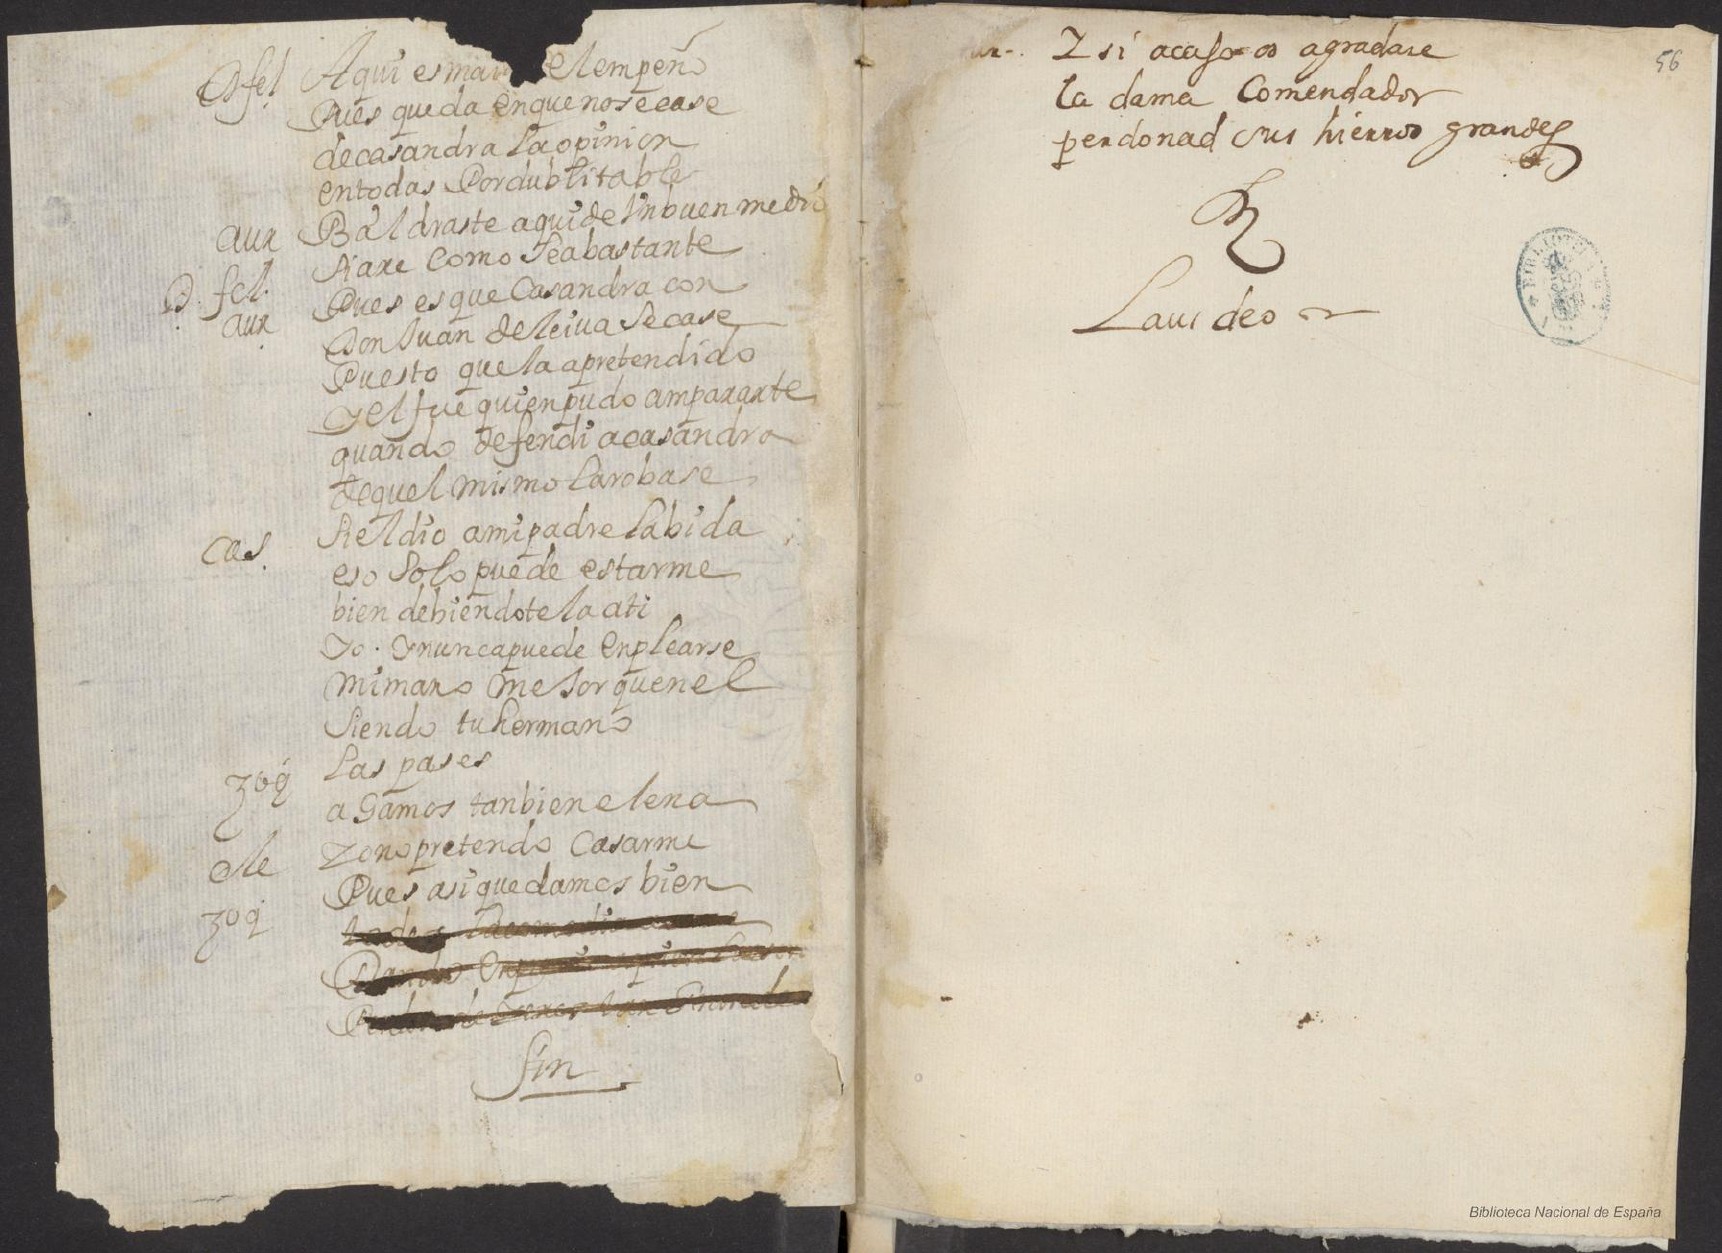 D fel Aqui es may el empeño
Pues queda en que no se case
de casandra la opinion
en todas Por dublitable
aur Baldraste aqui de Un buen medio
D. fel. Hare Como Sea bastante
aur Pues es que Casandra con
Don Juan de leiva Se case
Puesto que la a pretendido
Y el fue quien pudo ampararte
quando defendi a casandra
de quel mismo la robase
cas. Si el dio a mi padre la bida
eso Solo puede estarme
bien debiendotela a ti
Yo. Y nunca puede enplearse
mi mano mejor quen el
Siendo tu hermano
zoq Las pases
agamos tanbien elena
ele Yo no pretendo Casarme
zoq Pues asi quedamos bien
todos la comedia
Dando
fin
56
ur-. Y si acaso os agradare
la dama Comendador
perdonad sus hierros grandes
Laus deo
BIBLIOTECA
Biblioteca Nacional de España